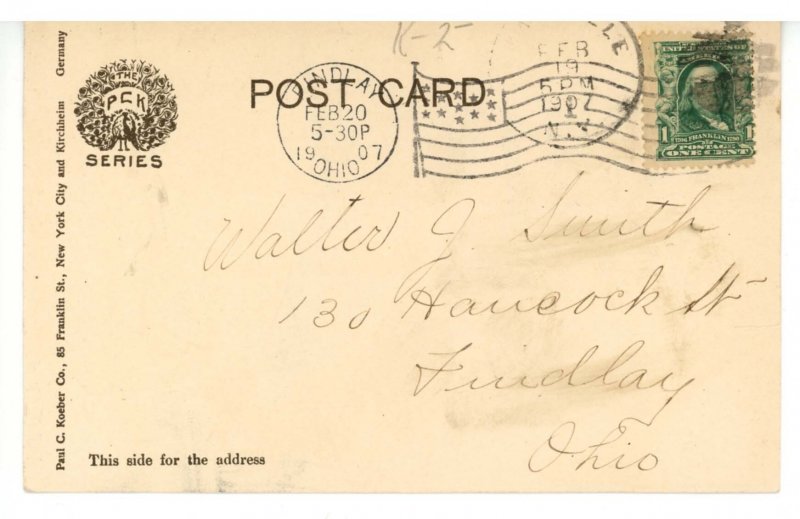 K-2-
POST CARD
THE
PCK
SERIES
FINDLAY
FEB 20
5-30P
1907
OHIO
LLE
FEB
19
5 PM
1907
N.Y.
UNITED STATES OF
AMERICA
1 1
1706 FRANKLIN 1790
POSTAGE
ONE CENT
Walter J. Smith
130 Hancock St
Findlay
Ohio
This side for the address
Paul C. Koeber Co., 85 Franklin St., New York City and Kirchheim Germany